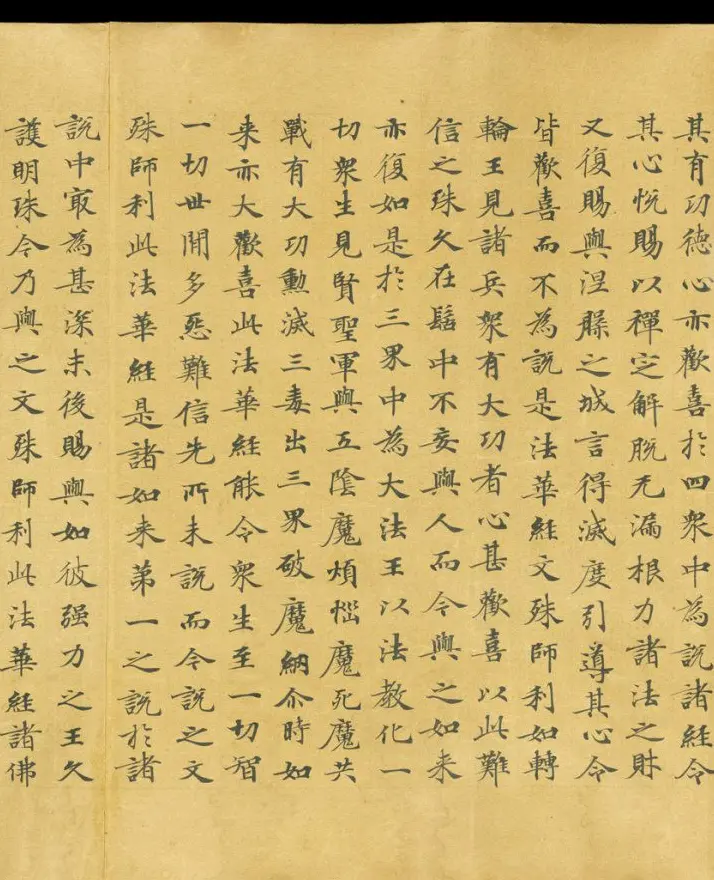 其有功德心亦歡喜於四衆中為說諸經令
其心恱賜以禪定解脫无漏根力諸法之財
又復賜與涅槃之城言得滅度引導其心令
皆歡喜而不為說是法華經文殊師利如轉
輪王見諸兵衆有大功者心甚歡喜以此難
信之珠久在髻中不妄與人而今與之如来
亦復如是於三界中為大法王以法教化一
切衆生見賢聖軍與五陰魔煩惱魔死魔共
戰有大功勳滅三毒出三界破魔網尒時如
来亦大歡喜此法華經能令衆生至一切智
一切世閒多怨難信先所未說而今說之文
殊師利此法華經是諸如来第一之說於諸
說中冣為甚深末後賜與如彼强力之王久
護明珠今乃與之文殊師利此法華經諸佛